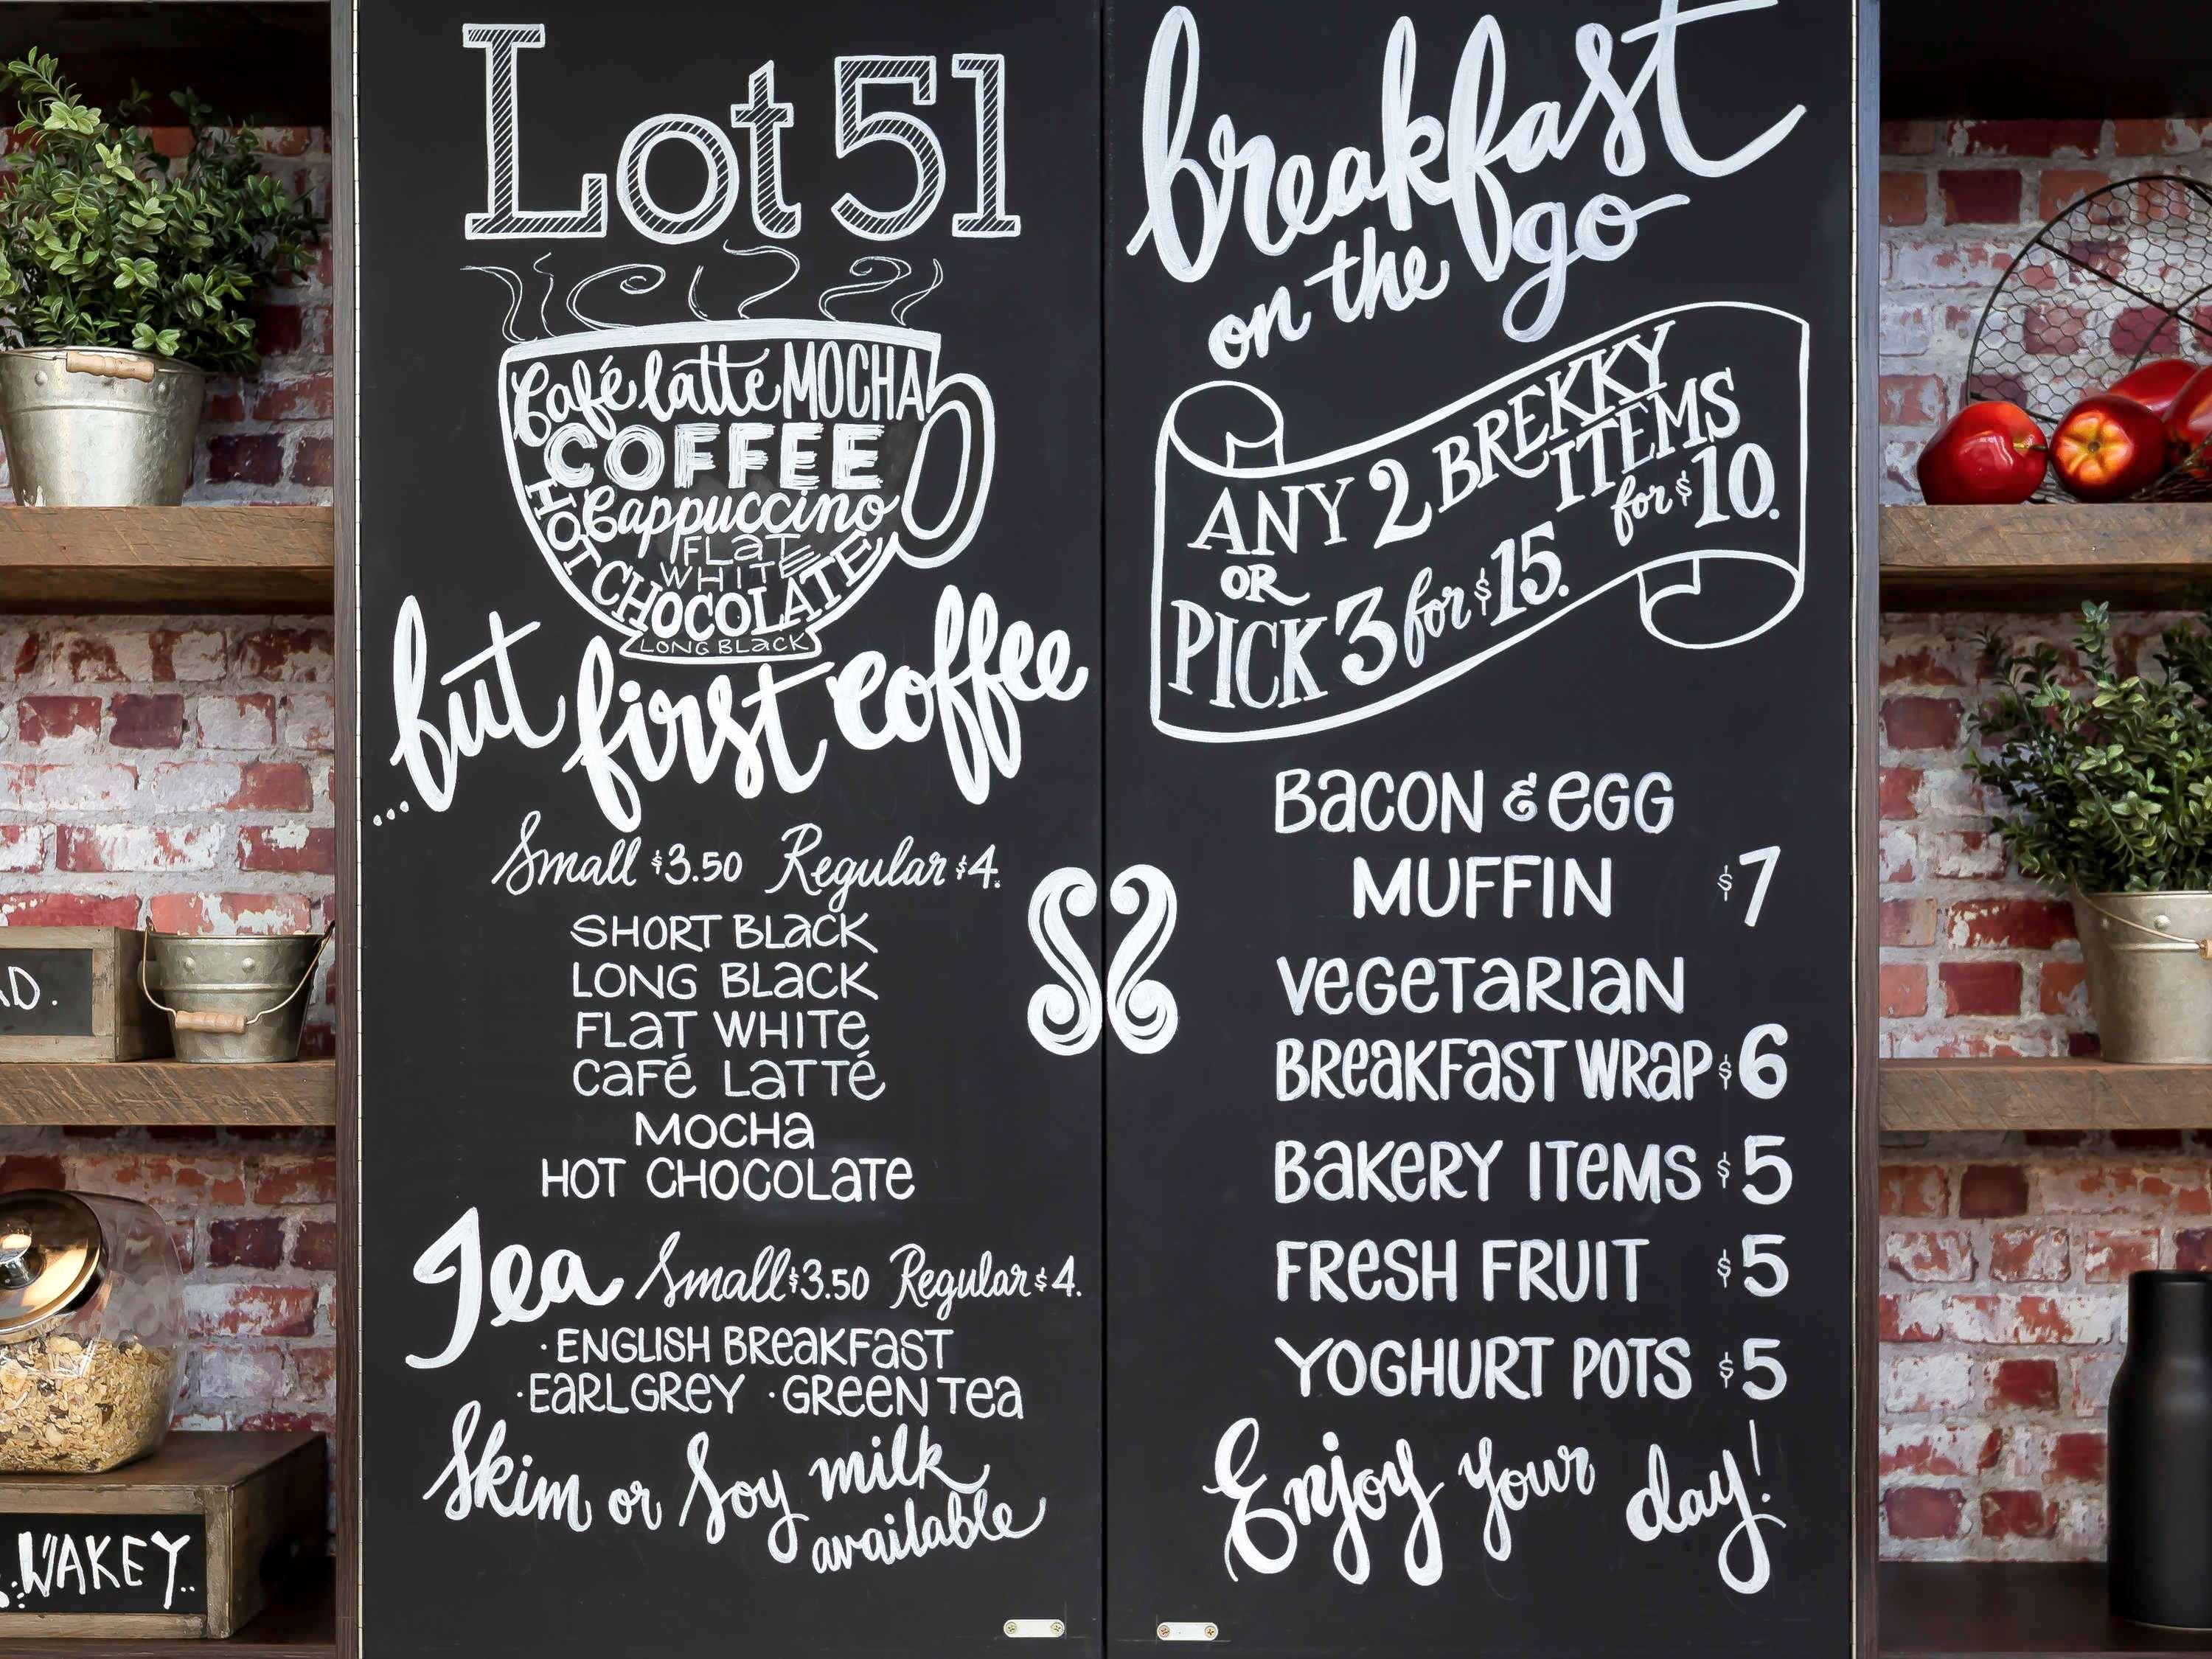 Lot 51
Café latte MOCHA
COFFEE
Cappuccino
FLaT
WHITE
HOT CHOCOLATE
LONG BLacK
...but first coffee
Small $3.50 Regular $4.
SHORT BLacK
LONG BLacK
FLaT WHITe
CaFé LaTTé
MOCHa
HOT CHOCOLaTe
Tea Small $3.50 Regular $4.
·ENGLISH BReaKFaST
·EaRL GReY ·GReeN Tea
Skim or Soy milk
available
breakfast
on the go
ANY 2 BREKKY
ITEMS
for $10.
OR
PICK 3 for $15.
BaCON & eGG
MUFFIN $7
VeGeTaRIaN
BReaKFaST WRaP $6
BaKeRY ITeMS $5
FReSH FRUIT $5
YOGHURT POTS $5
Enjoy your day!
D.
WAKEY..